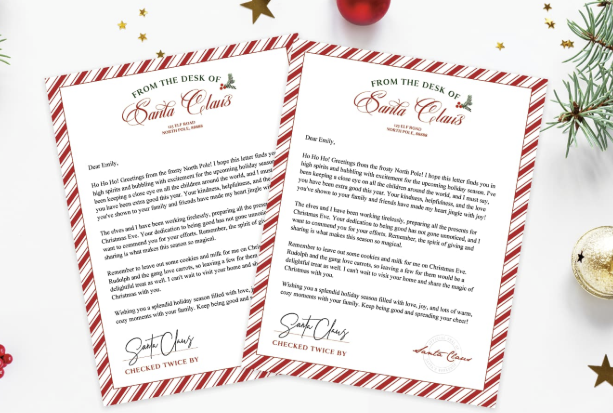 FROM THE DESK OF
Santa Claus
NORTH POLE, 88888
Dear Emily,
Ho Ho Ho! Greetings from the frosty North Pole! I hope this letter finds you
high spirits and bubbling with excitement for the upcoming holiday season
been keeping a close eye on all the children around the world, and I must
you have been extra good this year. Your kindness, helpfulness, and the
you've shown to your family and friends have made my heart jingle
The elves and I have been working tirelessly, preparing all the presents
Christmas Eve. Your dedication to being good has not gone unnoticed,
want to commend you for your efforts. Remember, the spirit of
sharing is what makes this season so magical.
Remember to leave out some cookies and milk for me on
Rudolph and the gang love carrots, so leaving a few for them
delightful treat as well. I can't wait to visit your home and share
Christmas with you.
Wishing you a splendid holiday season filled with love, joy,
cozy moments with your family. Keep being good and
Santa Claus
CHECKED TWICE BY
FROM THE DESK OF
Santa Claus
NORTH POLE, 88888
Dear Emily,
Ho Ho Ho! Greetings from the frosty North Pole! I hope this letter finds you in
high spirits and bubbling with excitement for the upcoming holiday season. I've
been keeping a close eye on all the children around the world, and I must say,
you have been extra good this year. Your kindness, helpfulness, and the love
you've shown to your family and friends have made my heart jingle with joy!
The elves and I have been working tirelessly, preparing all the presents for
Christmas Eve. Your dedication to being good has not gone unnoticed, and I
want to commend you for your efforts. Remember, the spirit of giving and
sharing is what makes this season so magical.
Remember to leave out some cookies and milk for me on Christmas Eve.
Rudolph and the gang love carrots, so leaving a few for them would be a
delightful treat as well. I can't wait to visit your home and share the magic of
Christmas with you.
Wishing you a splendid holiday season filled with love, joy, and lots of warm,
cozy moments with your family. Keep being good and spreading your cheer!
Santa Claus
CHECKED TWICE BY
Santa Claus